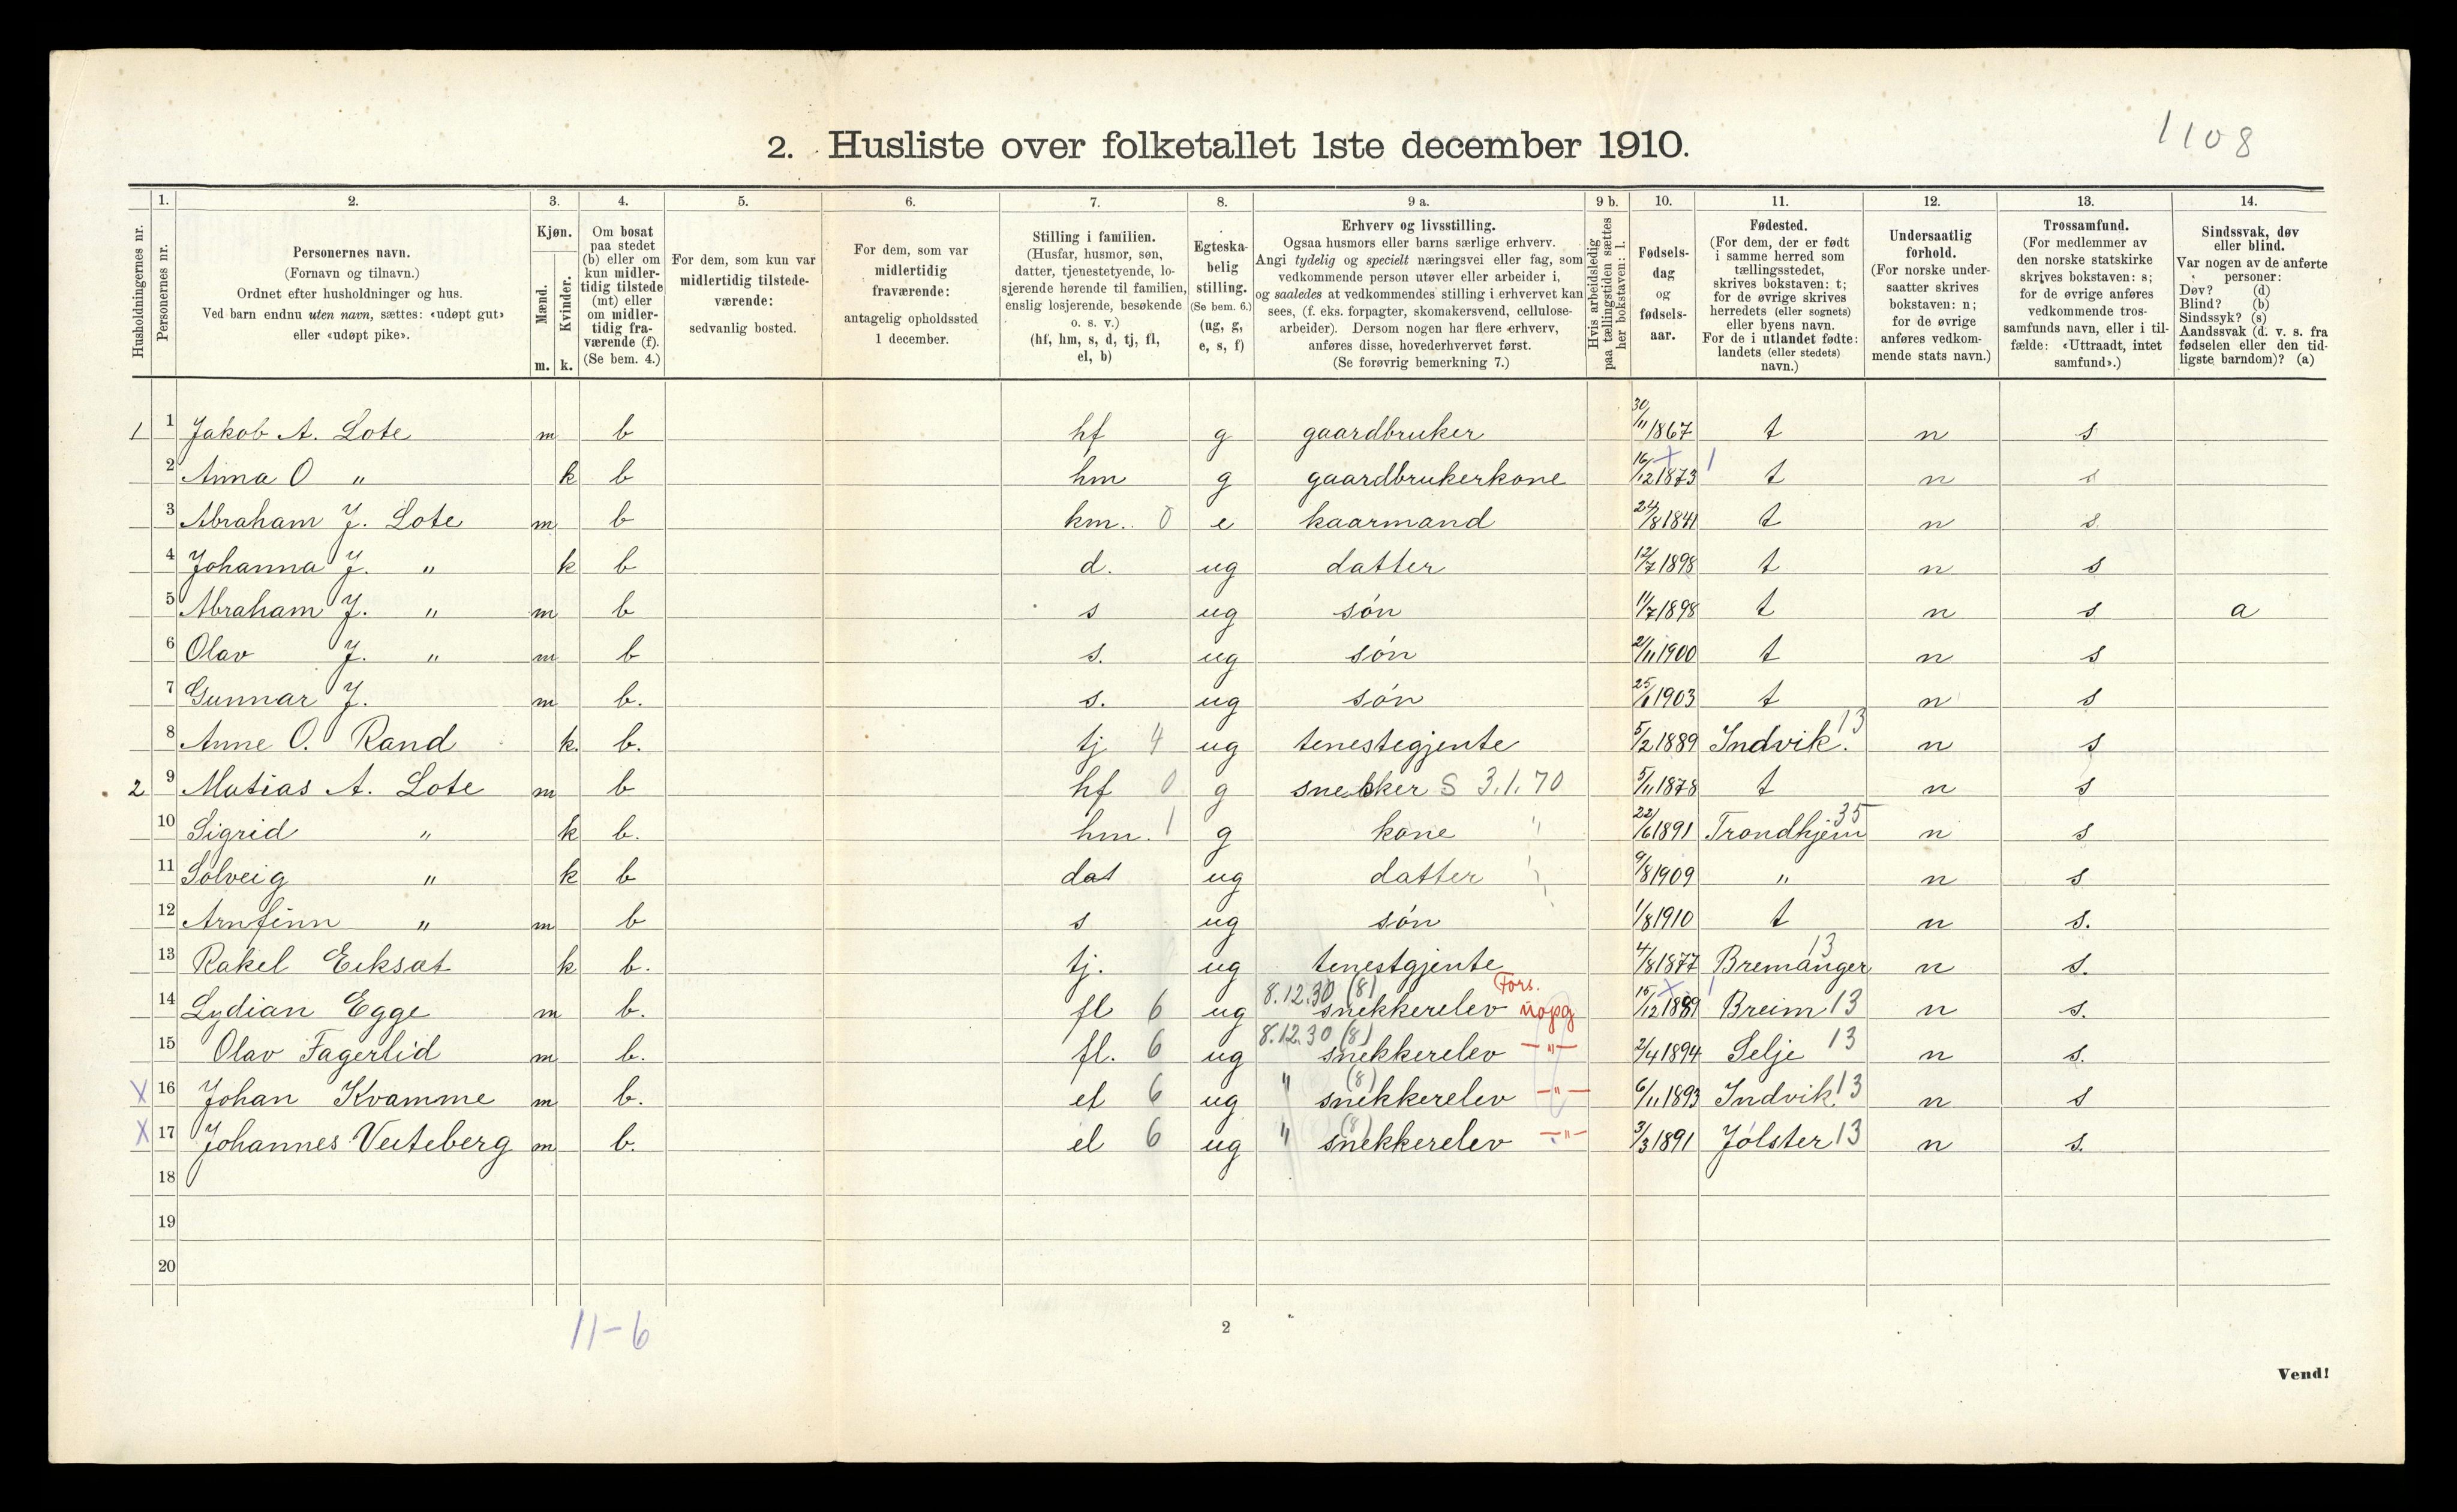 1108
2. Husliste over folketallet 1ste december 1910.
Husholdningernes nr.
1. Personernes nr.
2. Personernes navn.
(Fornavn og tilnavn.)
Ordnet efter husholdninger og hus.
Ved barn endnu uten navn, sættes: «udøpt gut»
eller «udøpt pike».
3. Kjøn.
Mænd. m.
Kvinder. k.
4. Om bosat
paa stedet
(b) eller om
kun midler-
tidig tilstede
(mt) eller
om midler-
tidig fra-
værende (f).
(Se bem. 4.)
5. For dem, som kun var
midlertidig tilstede-
værende:
sedvanlig bosted.
6. For dem, som var
midlertidig
fraværende:
antagelig opholdssted
1 december.
7. Stilling i familien.
(Husfar, husmor, søn,
datter, tjenestetyende, lo-
sjerende hørende til familien,
enslig losjerende, besøkende
o. s. v.)
(hf, hm, s, d, tj, fl,
el, b)
8. Egteska-
belig
stilling.
(Se bem. 6.)
(ug, g,
e, s, f)
9 a. Erhverv og livsstilling.
Ogsaa husmors eller barns særlige erhverv.
Angi tydelig og specielt næringsvei eller fag, som
vedkommende person utøver eller arbeider i,
og saaledes at vedkommendes stilling i erhvervet kan
sees, (f. eks. forpagter, skomakersvend, cellulose-
arbeider). Dersom nogen har flere erhverv,
anføres disse, hovederhvervet først.
(Se forøvrig bemerkning 7.)
9 b. Hvis arbeidsledig
paa tællingstiden sættes
her bokstaven: l.
10. Fødsels-
dag
og
fødsels-
aar.
11. Fødested.
(For dem, der er født
i samme herred som
tællingsstedet,
skrives bokstaven: t;
for de øvrige skrives
herredets (eller sognets)
eller byens navn.
For de i utlandet fødte:
landets (eller stedets)
navn.)
12. Undersaatlig
forhold.
(For norske under-
saatter skrives
bokstaven: n;
for de øvrige
anføres vedkom-
mende stats navn.)
13. Trossamfund.
(For medlemmer av
den norske statskirke
skrives bokstaven: s;
for de øvrige anføres
vedkommende tros-
samfunds navn, eller i til-
fælde: «Uttraadt, intet
samfund».)
14. Sindssvak, døv
eller blind.
Var nogen av de anførte
personer:
Døv? (d)
Blind? (b)
Sindssyk? (s)
Aandssvak (d. v. s. fra
fødselen eller den tid-
ligste barndom)? (a)
1 1 Jakob A. Lote m b hf g gaardbruker 30/11 1867 t n s
2 Anna O " k b hm g gaardbrukerkone 16/12 1873 t n s
3 Abraham J. Lote m b km. 0 e kaarmand /8 1841 t n s
4 Johanna J. " k b d. ug datter 12/7 1898 t n s
5 Abraham J. " m b s ug søn 11/7 1898 t n s a
6 Olav J. " m b s. ug søn 2/11 1900 t n s
7 Gunnar J. m b. s. ug søn 1903 t n s
8 Anne O. Rand k. b. tj 4 ug tenestegjente 5/2 1889 Indvik. 13 n s
2 9 Matias A. Lote m b hf 0 g snekker S 3.1.70 5/11 1878 t n s
10 Sigrid " k b. hm. 1 g kone " 22/6 1891 Trondhjem 35 n s
11 Solveig " k b dat ug datter 9/8 1909 " n s
12 Arnfinn " m b s ug søn 1/8 1910 t n s.
13 Rakel Eiksat k b. tj. ug tenestgjente 4/8 1877 Bremanger 13 n s.
14 Lydian Egge m b. fl 6 ug 8.12.30 (8) snekkerelev Fors. uopg 15/12 1889 Breim 13 n s.
15 Olav Fagerlid m b. fl. 6 ug 8.12.30 (8) snekkerelev —"— 2/4 1894 Selje 13 n s.
X 16 Johan Kvamme m b. el 6 ug " (8) snekkerelev —"— 6/11 1893 Indvik 13 n s
X 17 Johannes Veiteberg m b. el 6 ug " (8) snekkerelev —"— 3/3 1891 Jølster 13 n s.
18
19
20
11-6
2
Vend!